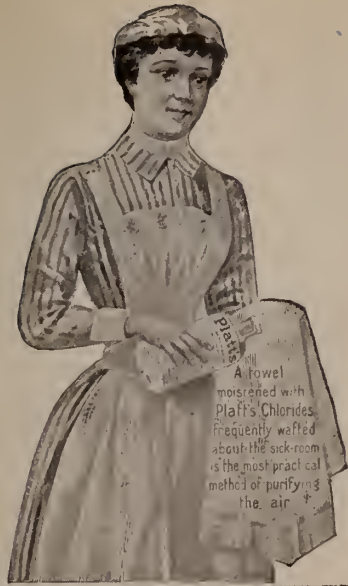 Platt's
A towel
moistened with
Platt's Chlorides,
frequently wafted
about the sick-room
is the most practical
method of purifying
the air